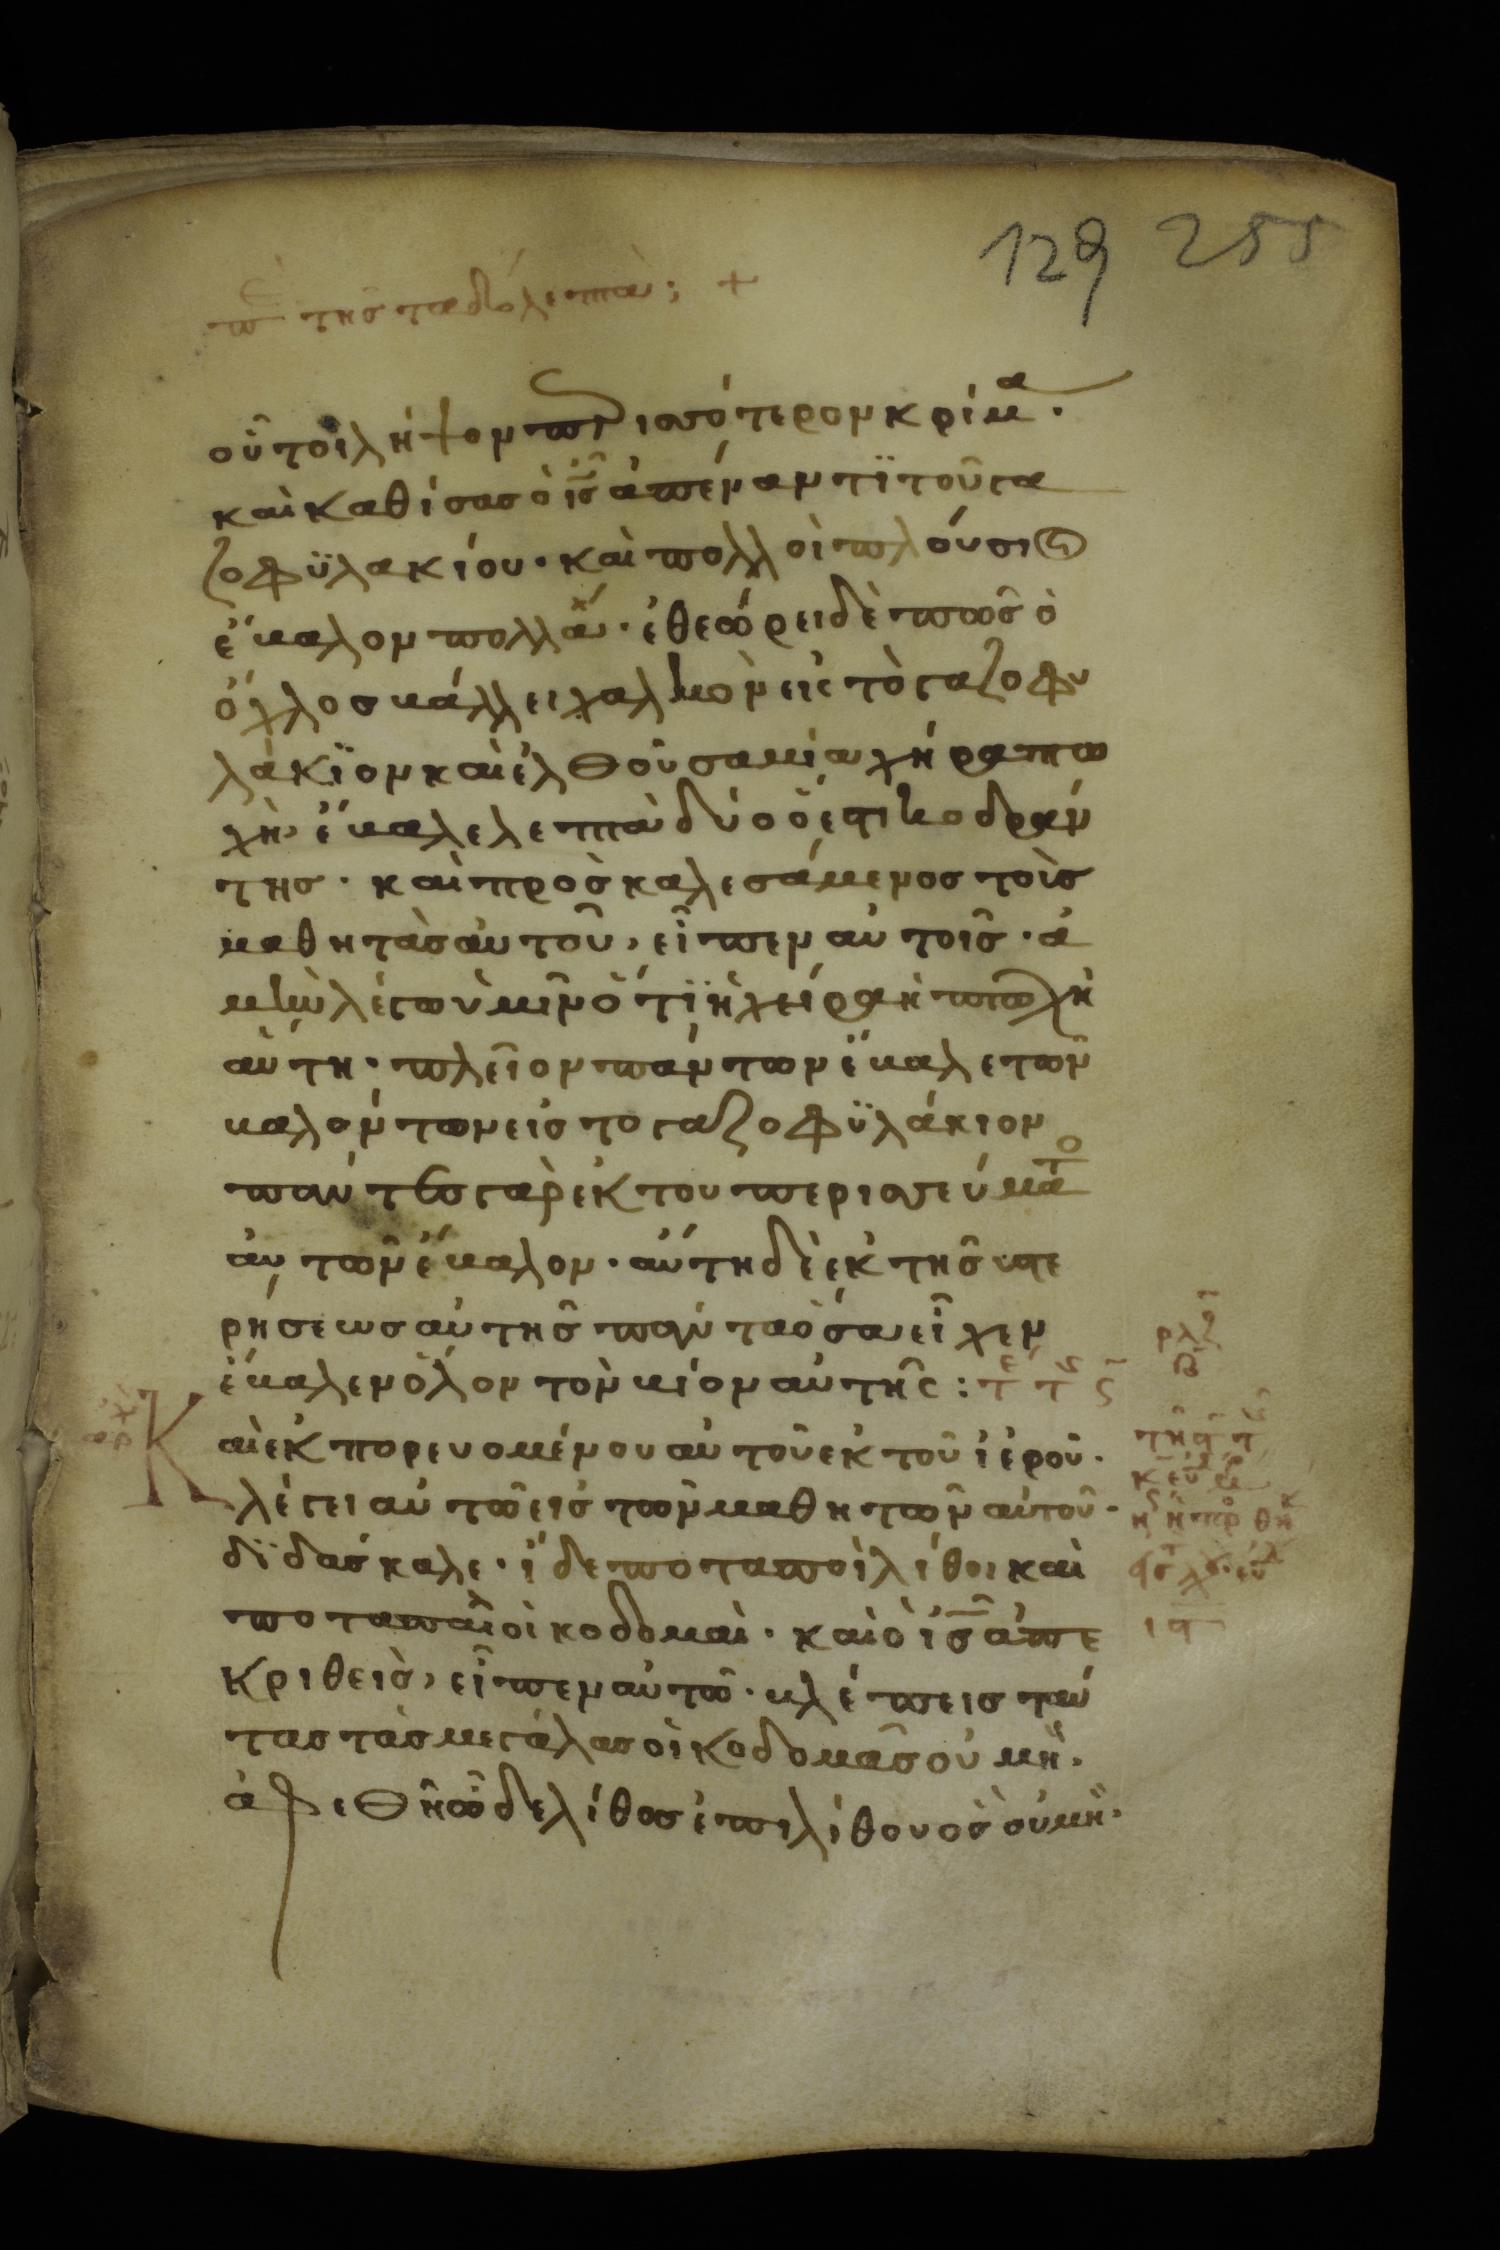 129 255
περὶ τῆς τὰ δύο λεπτά; +
οὗτοι λήψονται περισσότερον κρίμα.
καὶ καθίσας ὁ ις ἀπέναντϊ τοῦ γα
ζοφϋλακίου. καὶ πολλοὶ πλούσιοι
ἔβαλον πολλά. ἐθεώρει δὲ πῶς ὁ
ὄχλος βάλλει χαλκὸν εἰς τὸ γαζοφυ
λάκϊον καὶ ἐλθοῦσα μία χήρα πτω
χὴ, ἔβαλε λεπτὰ δύο ὅ ἐστι κοδράν
της. καὶ προσκαλεσάμενος τοὺς
μαθητὰς αὐτοῦ, εἶπεν αὐτοῖς. ἀ
μὴν λέγω ὑμῖν ὅτϊ ἡ χείρα ἡ πτωχὴ
αὕτη. πλεῖον πάντων ἔβαλε τῶν
βαλόντων εἰς το γαζοφϋλάκιον
πάντες γαρ ἐκ του περισσεύματο
αὐτῶν ἔβαλον. αὕτη δὲ ἐκ τῆς ὑστε
ρήσεως αὐτῆς πάντα ὅσα εἶχεν
ἔβαλεν ὅλον τὸν βίον αὐτῆς:
Καὶ ἐκπορευομένου αὐτοῦ ἐκ τοῦ ἱεροῦ.
λέγει αὐτῶ εἷς τῶν μαθητῶν αὐτοῦ.
δϊδάσκαλε. ἴδε ποταποὶ λίθοι καὶ
ποταπαὶ οἰκοδομαὶ. καὶ ὁ ις ἀπε
κριθεὶς, εἶπεν αὐτῶ. βλέπεις ταύ
τας τὰς μεγάλας οἰκοδομὰς οὐ μὴ.
ἀφεθῆ ὧδε λίθος ἐπι λίθον ὃς οὐ μὴ.